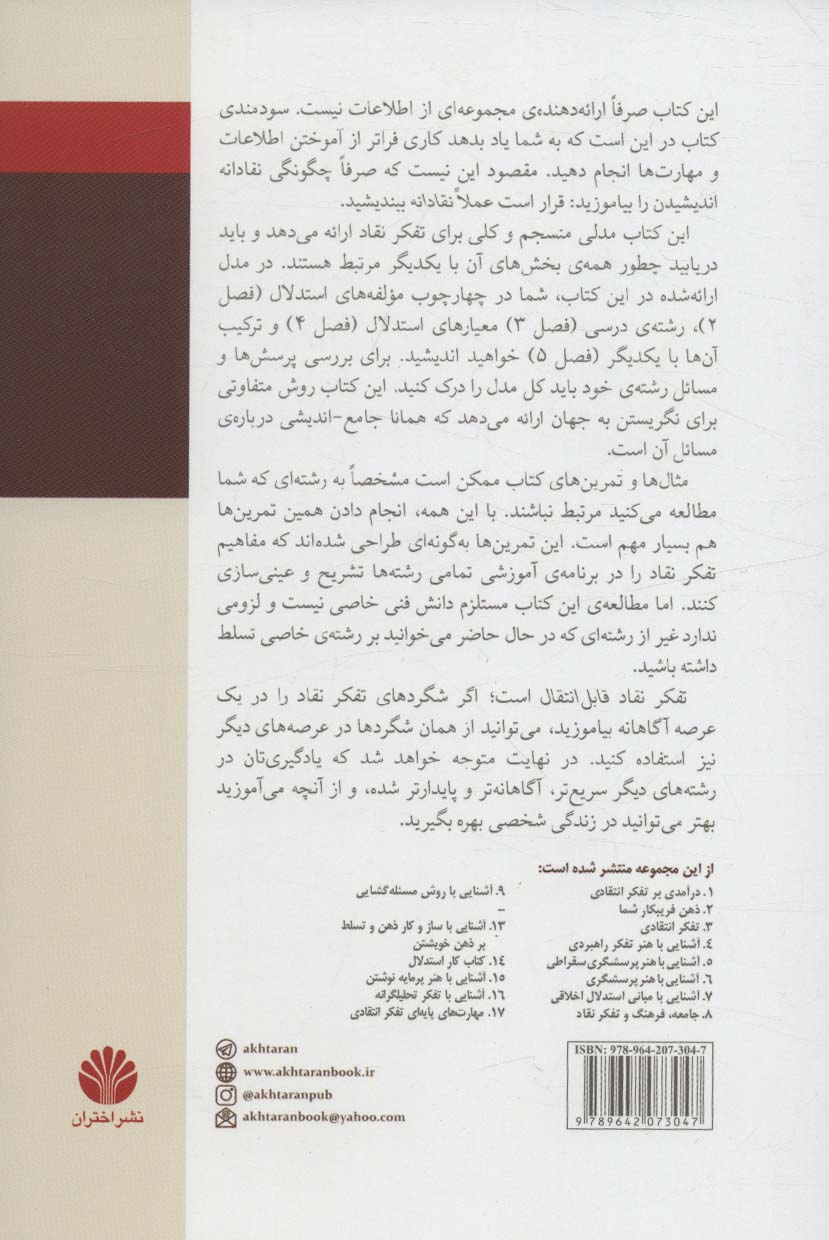 این کتاب صرفاً ارائه‌دهنده‌ی مجموعه‌ای از اطلاعات نیست. سودمندی
کتاب در این است که به شما یاد بدهد کاری فراتر از آموختن اطلاعات
و مهارت‌ها انجام دهید. مقصود این نیست که صرفاً چگونگی نقادانه
اندیشیدن را بیاموزید: قرار است عملاً نقادانه بیندیشید.
این کتاب مدلی منسجم و کلی برای تفکر نقاد ارائه می‌دهد و باید
دریابید چطور همه‌ی بخش‌های آن با یکدیگر مرتبط هستند. در مدل
ارائه‌شده در این کتاب، شما در چهارچوب مؤلفه‌های استدلال (فصل
۲)، رشته‌ی درسی (فصل ۳) معیارهای استدلال (فصل ۴) و ترکیب
آن‌ها با یکدیگر (فصل ۵) خواهید اندیشید. برای بررسی پرسش‌ها و
مسائل رشته‌ی خود باید کل مدل را درک کنید. این کتاب روش متفاوتی
برای نگریستن به جهان ارائه می‌دهد که همانا جامع-اندیشی درباره‌ی
مسائل آن است.
مثال‌ها و تمرین‌های کتاب ممکن است مشخصاً به رشته‌ای که شما
مطالعه می‌کنید مرتبط نباشند. با این همه، انجام دادن همین تمرین‌ها
هم بسیار مهم است. این تمرین‌ها به‌گونه‌ای طراحی شده‌اند که مفاهیم
تفکر نقاد را در برنامه‌ی آموزشی تمامی رشته‌ها تشریح و عینی‌سازی
کنند. اما مطالعه‌ی این کتاب مستلزم دانش فنی خاصی نیست و لزومی
ندارد غیر از رشته‌ای که در حال حاضر می‌خوانید بر رشته‌ی خاصی تسلط
داشته باشید.
تفکر نقاد قابل‌انتقال است؛ اگر شگردهای تفکر نقاد را در یک
عرصه آگاهانه بیاموزید، می‌توانید از همان شگردها در عرصه‌های دیگر
نیز استفاده کنید. در نهایت متوجه خواهد شد که یادگیری‌تان در
رشته‌های دیگر سریع‌تر، آگاهانه‌تر و پایدارتر شده، و از آنچه می‌آموزید
بهتر می‌توانید در زندگی شخصی بهره بگیرید.
از این مجموعه منتشر شده است:
۱. درآمدی بر تفکر انتقادی
۲. ذهن فریبکار شما
۳. تفکر انتقادی
۴. آشنایی با هنر تفکر راهبردی
۵. آشنایی با هنر پرسشگری سقراطی
۶. آشنایی با هنر پرسشگری
۷. آشنایی با مبانی استدلال اخلاقی
۸. جامعه، فرهنگ و تفکر نقاد
۹. آشنایی با روش مسئله‌گشایی
...
۱۳. آشنایی با ساز و کار ذهن و تسلط
بر ذهن خویشتن
۱۴. کتاب کار استدلال
۱۵. آشنایی با هنر پرمایه نوشتن
۱۶. آشنایی با تفکر تحلیلگرانه
۱۷. مهارت‌های پایه‌ای تفکر انتقادی
ISBN: 978-964-207-304-7
9 789642 073047
akhtaran
www.akhtaranbook.ir
@akhtaranpub
akhtaranbook@yahoo.com
نشر اختران